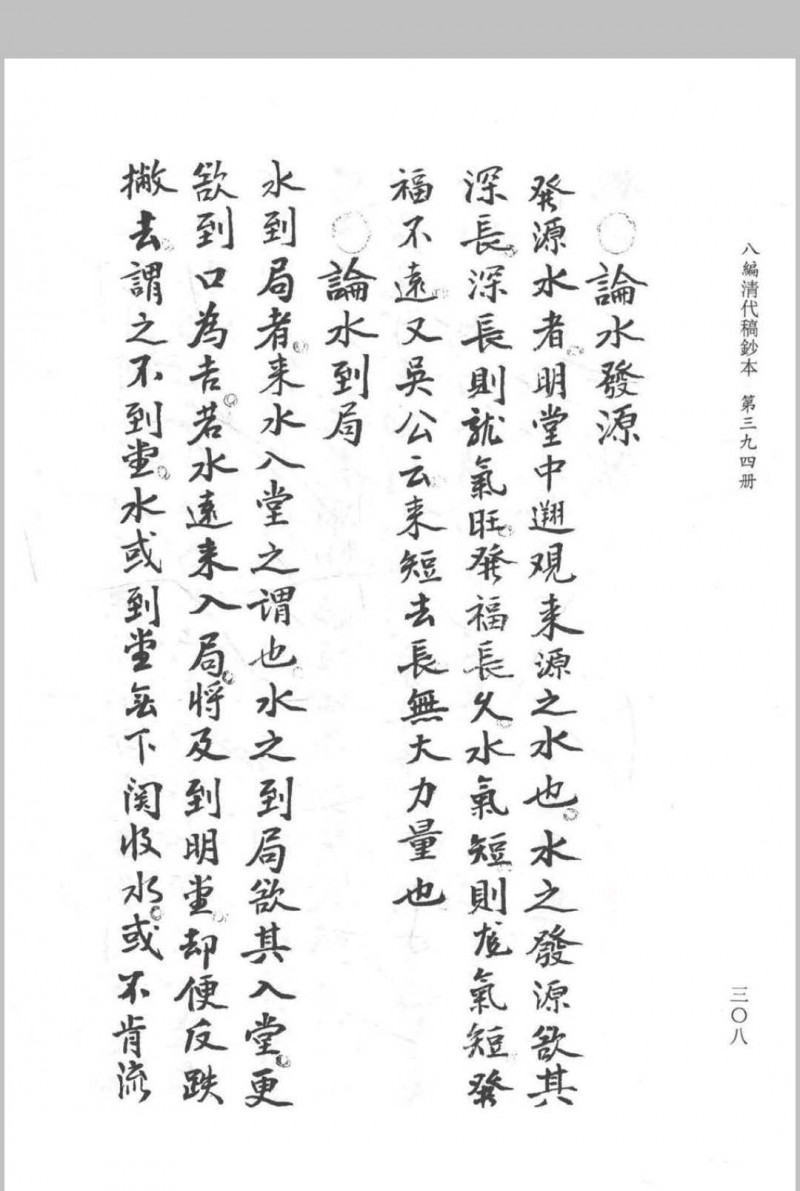 八編清代稿鈔本 第三九四册
三〇八
論水發源
發源水者明堂中遡观来源之水也水之發源欲其
深長深長則龍氣旺發福長久水氣短則龍氣短發
福不遠又吳公云来短去長無大力量也
論水到局
水到局者来水入堂之謂也水之到局欲其入堂更
欲到口為吉若水遠来入局將及到明堂却便反跌
撇去謂之不到堂水或到堂無下関收水或不肯流